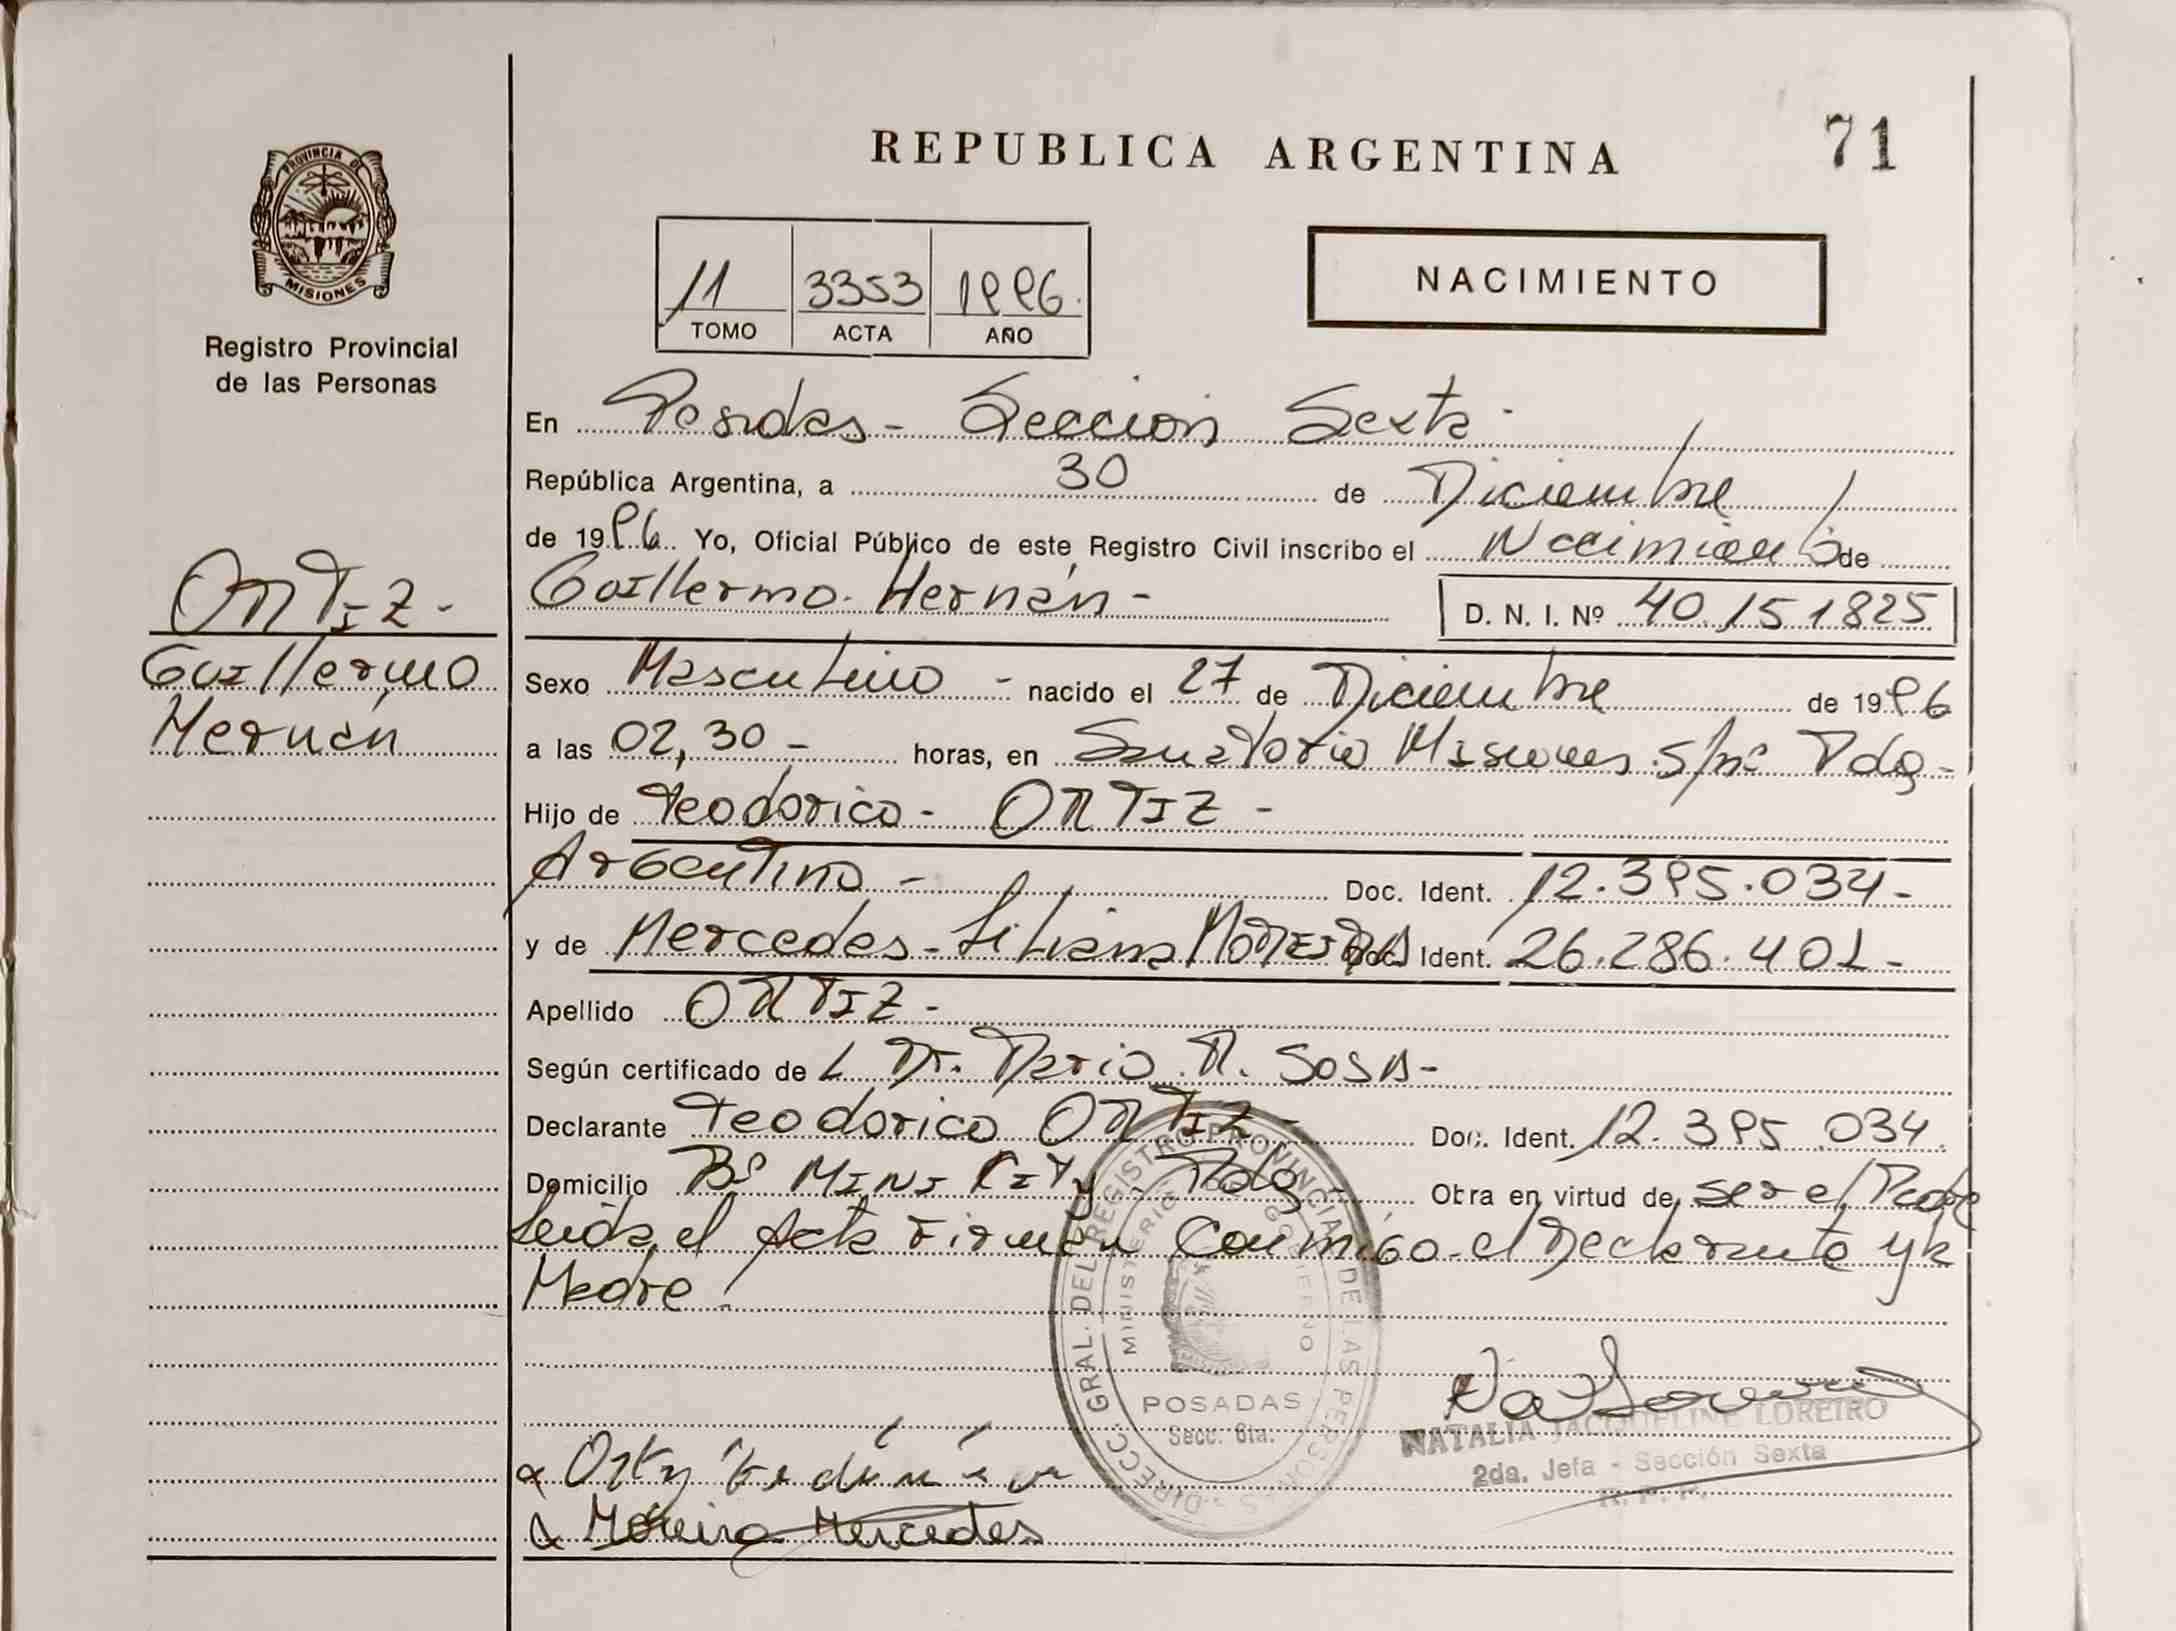 REPUBLICA ARGENTINA
71
PROVINCIA DE
MISIONES
Registro Provincial
de las Personas
11 3353 1996.
TOMO ACTA AÑO
NACIMIENTO
En Posadas - Sección Sexta -
República Argentina, a 30 de Diciembre
de 1996. Yo, Oficial Público de este Registro Civil inscribo el Nacimiento de
Guillermo Hernán -
D. N. I. Nº 40.151825
ORTIZ -
Guillermo
Hernán
Sexo Masculino - nacido el 27 de Diciembre de 1996
a las 02,30 - horas, en Sanatorio Misiones s/nº Pdas -
Hijo de Teodorico - ORTIZ -
Argentino - Doc. Ident. 12.395.034 -
y de Mercedes - Liliana MOREIRA Doc. Ident. 26.286.401 -
Apellido ORTIZ -
Según certificado de L Dr. Dario R. SOSA -
Declarante Teodorico ORTIZ - Doc. Ident. 12.395.034.
Domicilio Bº MINI CITY Pdas - Obra en virtud de ser el Padre
Leída el Acta Firman Conmigo el Declarante y la
Madre.
DIRECC. GRAL. DEL REGISTRO PROVINCIAL DE LAS PERSONAS
MINISTERIO DE GOBIERNO
POSADAS
Secc. 6ta.
NATALIA JACQUELINE LOREIRO
2da. Jefa - Sección Sexta
R. P. P.
Moreira Mercedes